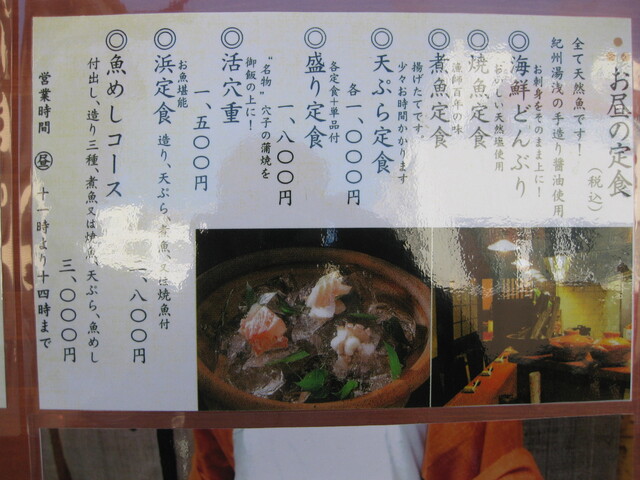 お昼の定食
(税込)
全て天然魚です!
紀州湯浅の手造り醤油使用
◎海鮮どんぶり
お刺身をそのまま上に!
◎焼魚定食
おいしい天然塩使用
◎煮魚定食
漁師百年の味
◎天ぷら定食
揚げたてです。
少々お時間かかります
各一、〇〇〇円
◎盛り定食
各定食+単品付
一、八〇〇円
◎活穴重
"名物"穴子の蒲焼を
御飯の上に!
一、五〇〇円
◎浜定食
お魚堪能
造り、天ぷら、煮魚、又は焼魚付
二、八〇〇円
◎魚めしコース
付出し、造り三種、煮魚又は焼魚、天ぷら、魚めし
三、〇〇〇円
営業時間 昼 十一時より十四時まで